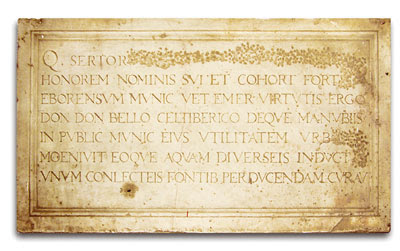 Q. SERTOR
HONOREM NOMINIS SVI ET COHORT FORT
EBORENSVM MVNIC VET EMER VIRTVTIS ERGO
DON DON BELLO CELTIBERICO DEQVE MANVBIIS
IN PVBLIC MVNIC EIVS VTILITATEM VRB
MOENIVIT EOQVE AQVAM DIVERSEIS INDVCT
VNVM CONLECTEIS FONTIB PERDVCENDAM CVRAV